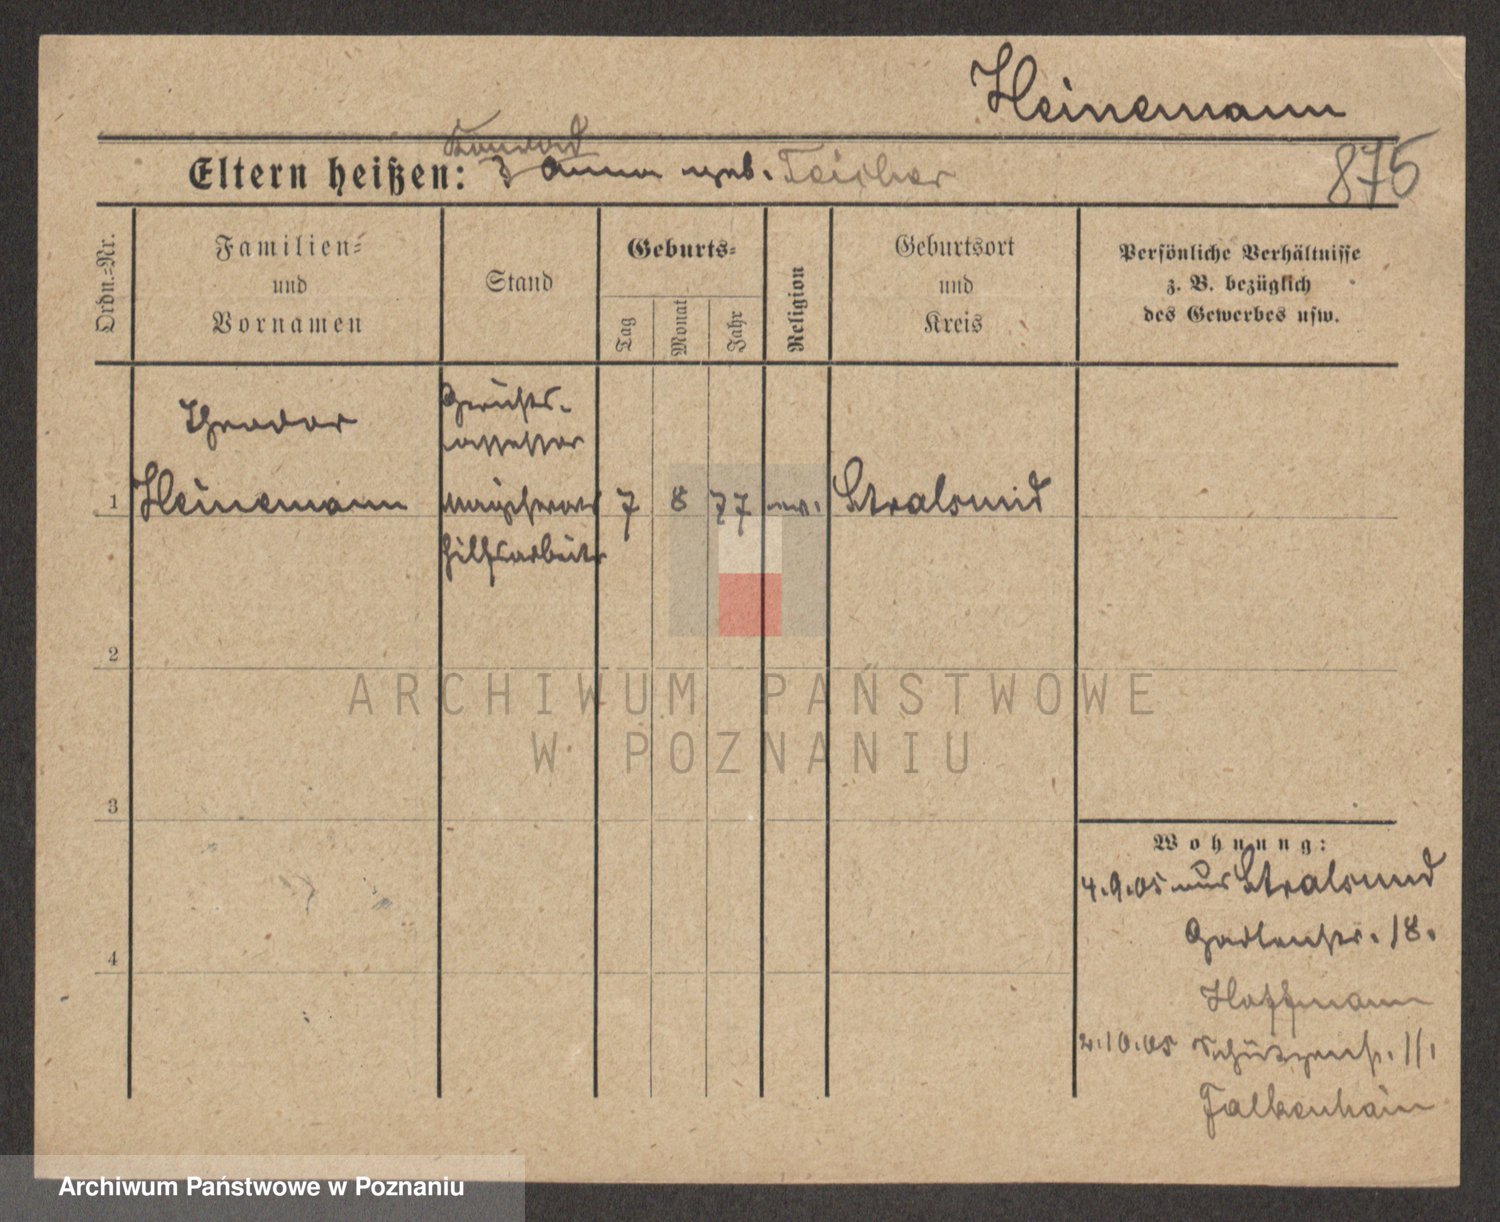 Heinemann
Konrad
Eltern heißen: Anna geb. Teicher
875
Ordn.=Nr.
Familien=
und
Vornamen
Stand
Geburts=
Tag
Monat
Jahr
Religion
Geburtsort
und
Kreis
Persönliche Verhältnisse
z. B. bezüglich
des Gewerbes usw.
Theodor
Gerichts-
assessor
1 Heinemann Magistrats 7 8 77 ev. Stralsund
hilfsarbeiter
2
ARCHIWUM PAŃSTWOWE
W POZNANIU
3
Wohnung:
4.9.05 aus Stralsund
Gartenstr. 18.
4
Hoffmann
2.10.05 Schützenstr. 11.
Falkenhain
Archiwum Państwowe w Poznaniu